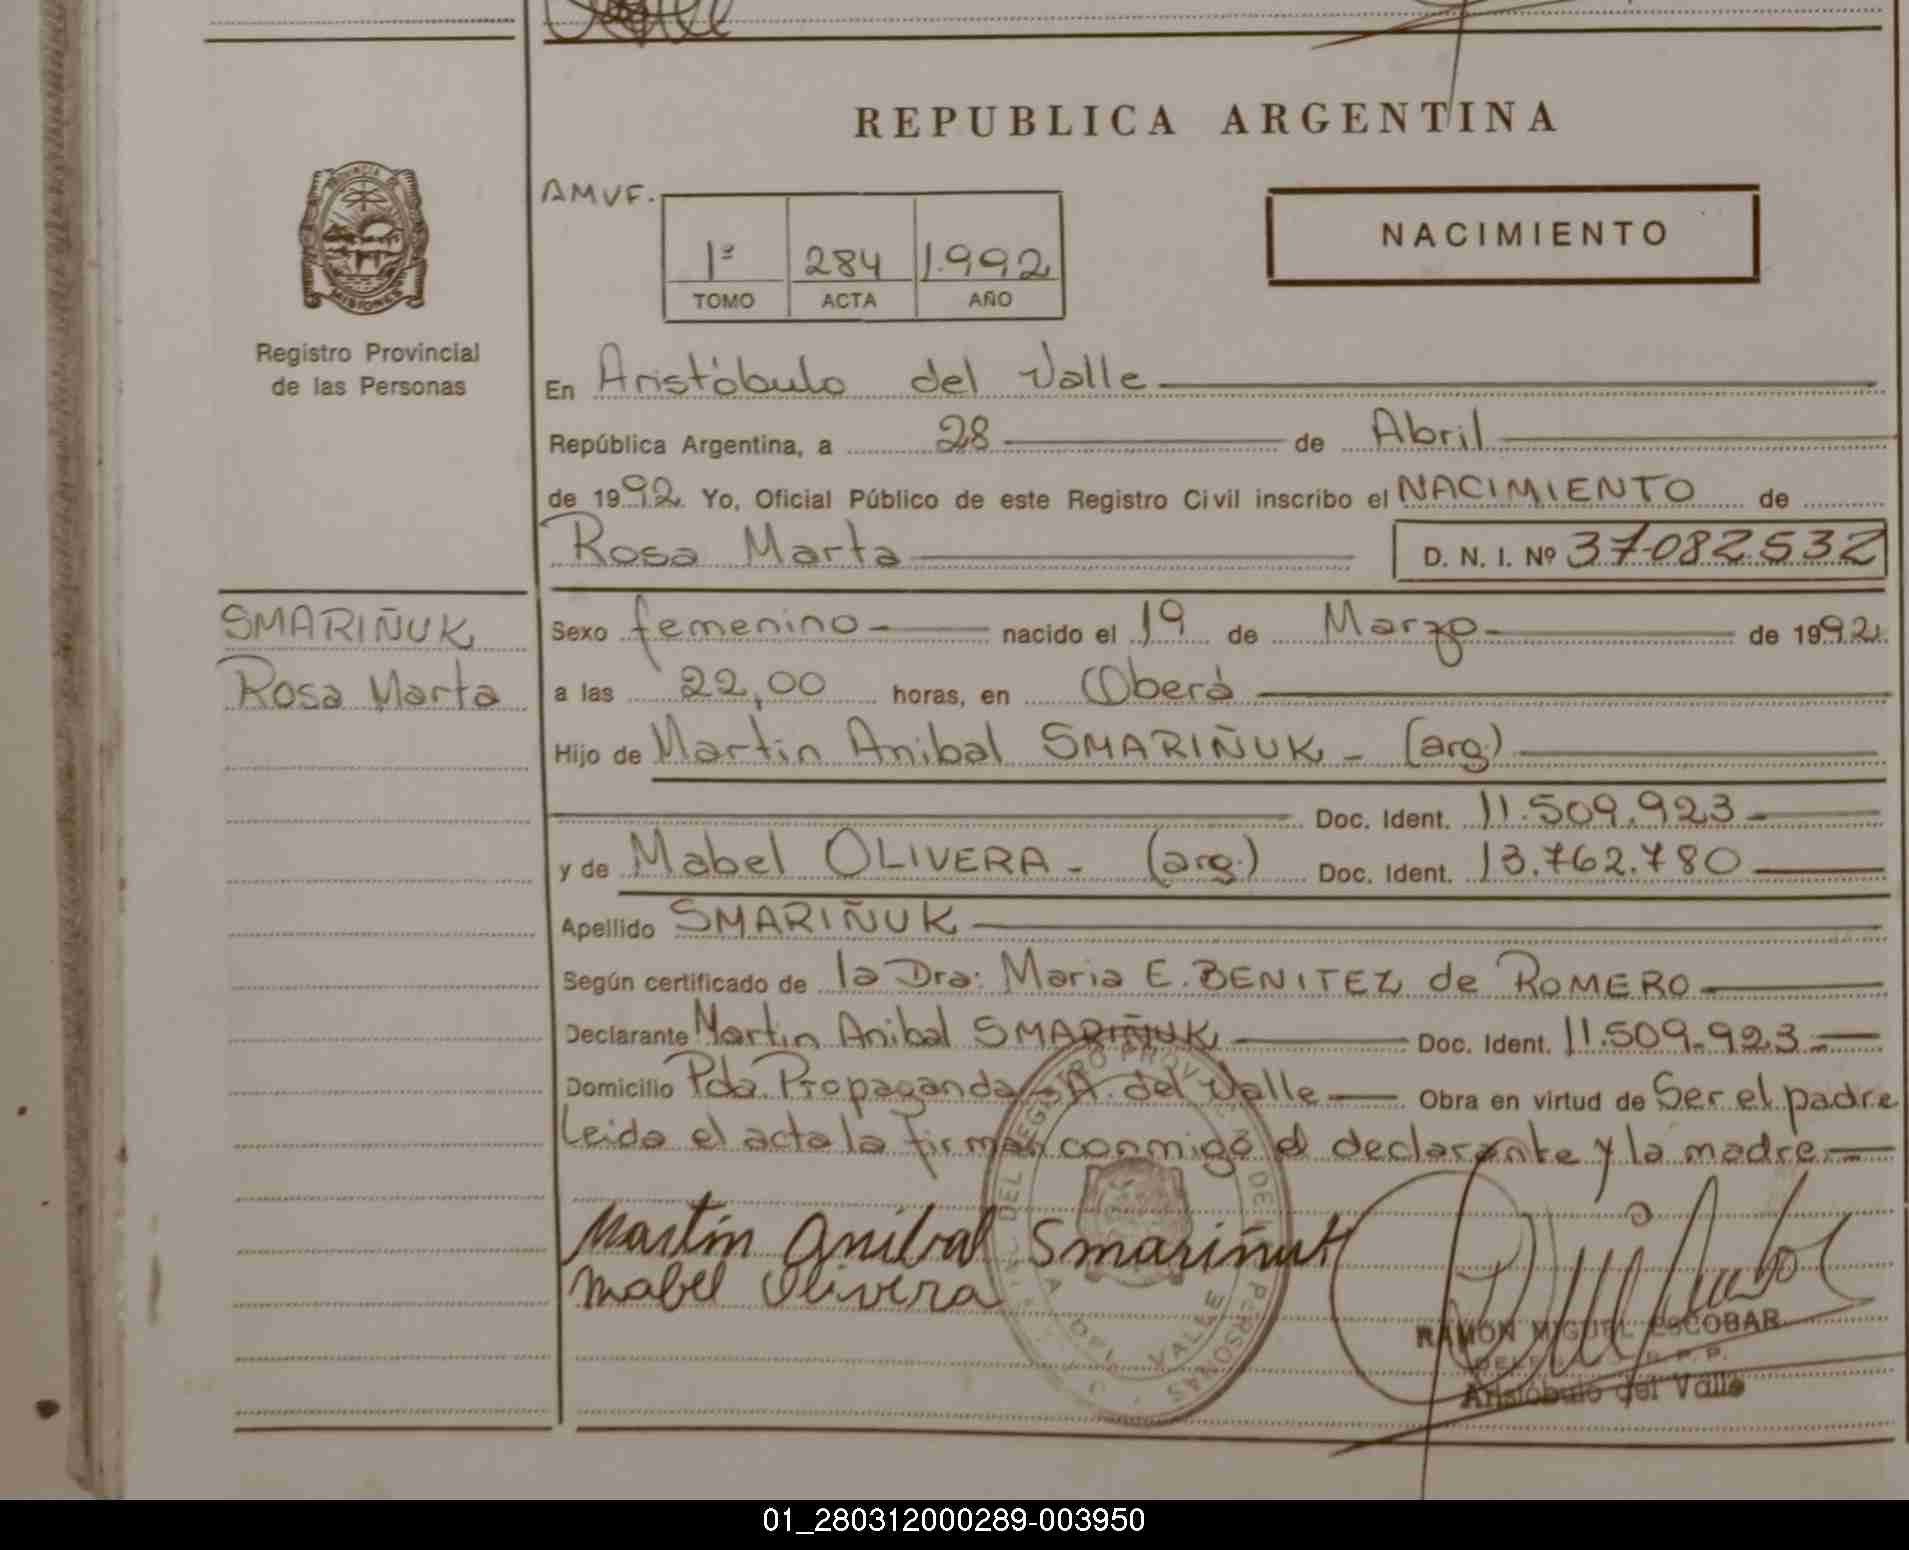 REPUBLICA ARGENTINA
PROVINCIA
MISIONES
Registro Provincial
de las Personas
AMVF.
1º 284 1.992
TOMO ACTA AÑO
NACIMIENTO
En Aristóbulo del Valle
República Argentina, a 28 de Abril
de 1992 Yo, Oficial Público de este Registro Civil inscribo el NACIMIENTO de
Rosa Marta D. N. I. Nº 37.082.532
SMARIÑUK
Rosa Marta
Sexo femenino nacido el 19 de Marzo de 1992
a las 22,00 horas, en Oberá
Hijo de Martin Anibal SMARIÑUK - (arg.)
Doc. Ident. 11.509.923
y de Mabel OLIVERA - (arg.) Doc. Ident. 13.762.780
Apellido SMARIÑUK
Según certificado de la Dra: Maria E. BENITEZ de ROMERO
Declarante Martin Anibal SMARIÑUK Doc. Ident. 11.509.923
Domicilio Pda. Propaganda - A. del Valle Obra en virtud de Ser el padre
Leida el acta la firman conmigo el declarante y la madre
Martín Anibal Smariñuk
Mabel Olivera
DEL REGISTRO DE PERSONAS
DEL VALLE
RAMON MIGUEL ESCOBAR
Aristóbulo del Valle
01_280312000289-003950